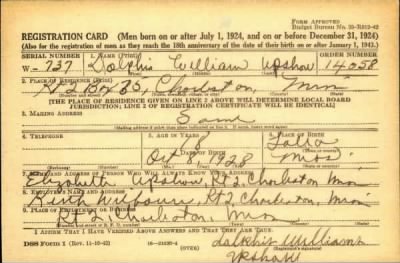 FORM APPROVED
Budget Bureau No. 33-R012-42
REGISTRATION CARD (Men born on or after July 1, 1924, and on or before December 31, 1924)
(Also for the registration of men as they reach the 18th anniversary of the date of their birth on or after January 1, 1943.)
SERIAL NUMBER 1. NAME (Print) ORDER NUMBER
W-737 William Upshaw 14058
2. PLACE OF RESIDENCE (Print)
Rt 2 Box 35, Charleston, Miss
[THE PLACE OF RESIDENCE GIVEN ON LINE 2 ABOVE WILL DETERMINE LOCAL BOARD
JURISDICTION; LINE 2 OF REGISTRATION CERTIFICATE WILL BE IDENTICAL]
3. MAILING ADDRESS
Same
4. TELEPHONE 5. AGE IN YEARS 6. PLACE OF BIRTH
18
DATE OF BIRTH
Oct 8, Miss
7. NAME AND ADDRESS OF PERSON WHO WILL ALWAYS KNOW YOUR ADDRESS
Elizabeth Upshaw, Rt 2, Charleston Miss
8. EMPLOYER'S NAME AND ADDRESS
Rt 2 Charleston, Miss
9. PLACE OF EMPLOYMENT OR BUSINESS
Rt 2, Charleston, Miss
I AFFIRM THAT I HAVE VERIFIED ABOVE ANSWERS AND THAT THEY ARE TRUE.
DSS Form 1 (Rev. 11-16-42) (OVER) William
Upshaw